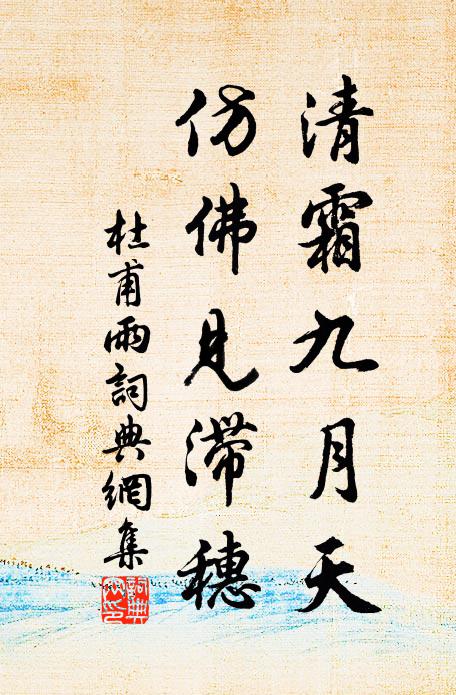 清霜九月天
仿佛見滯穗
杜甫雨詞典網集